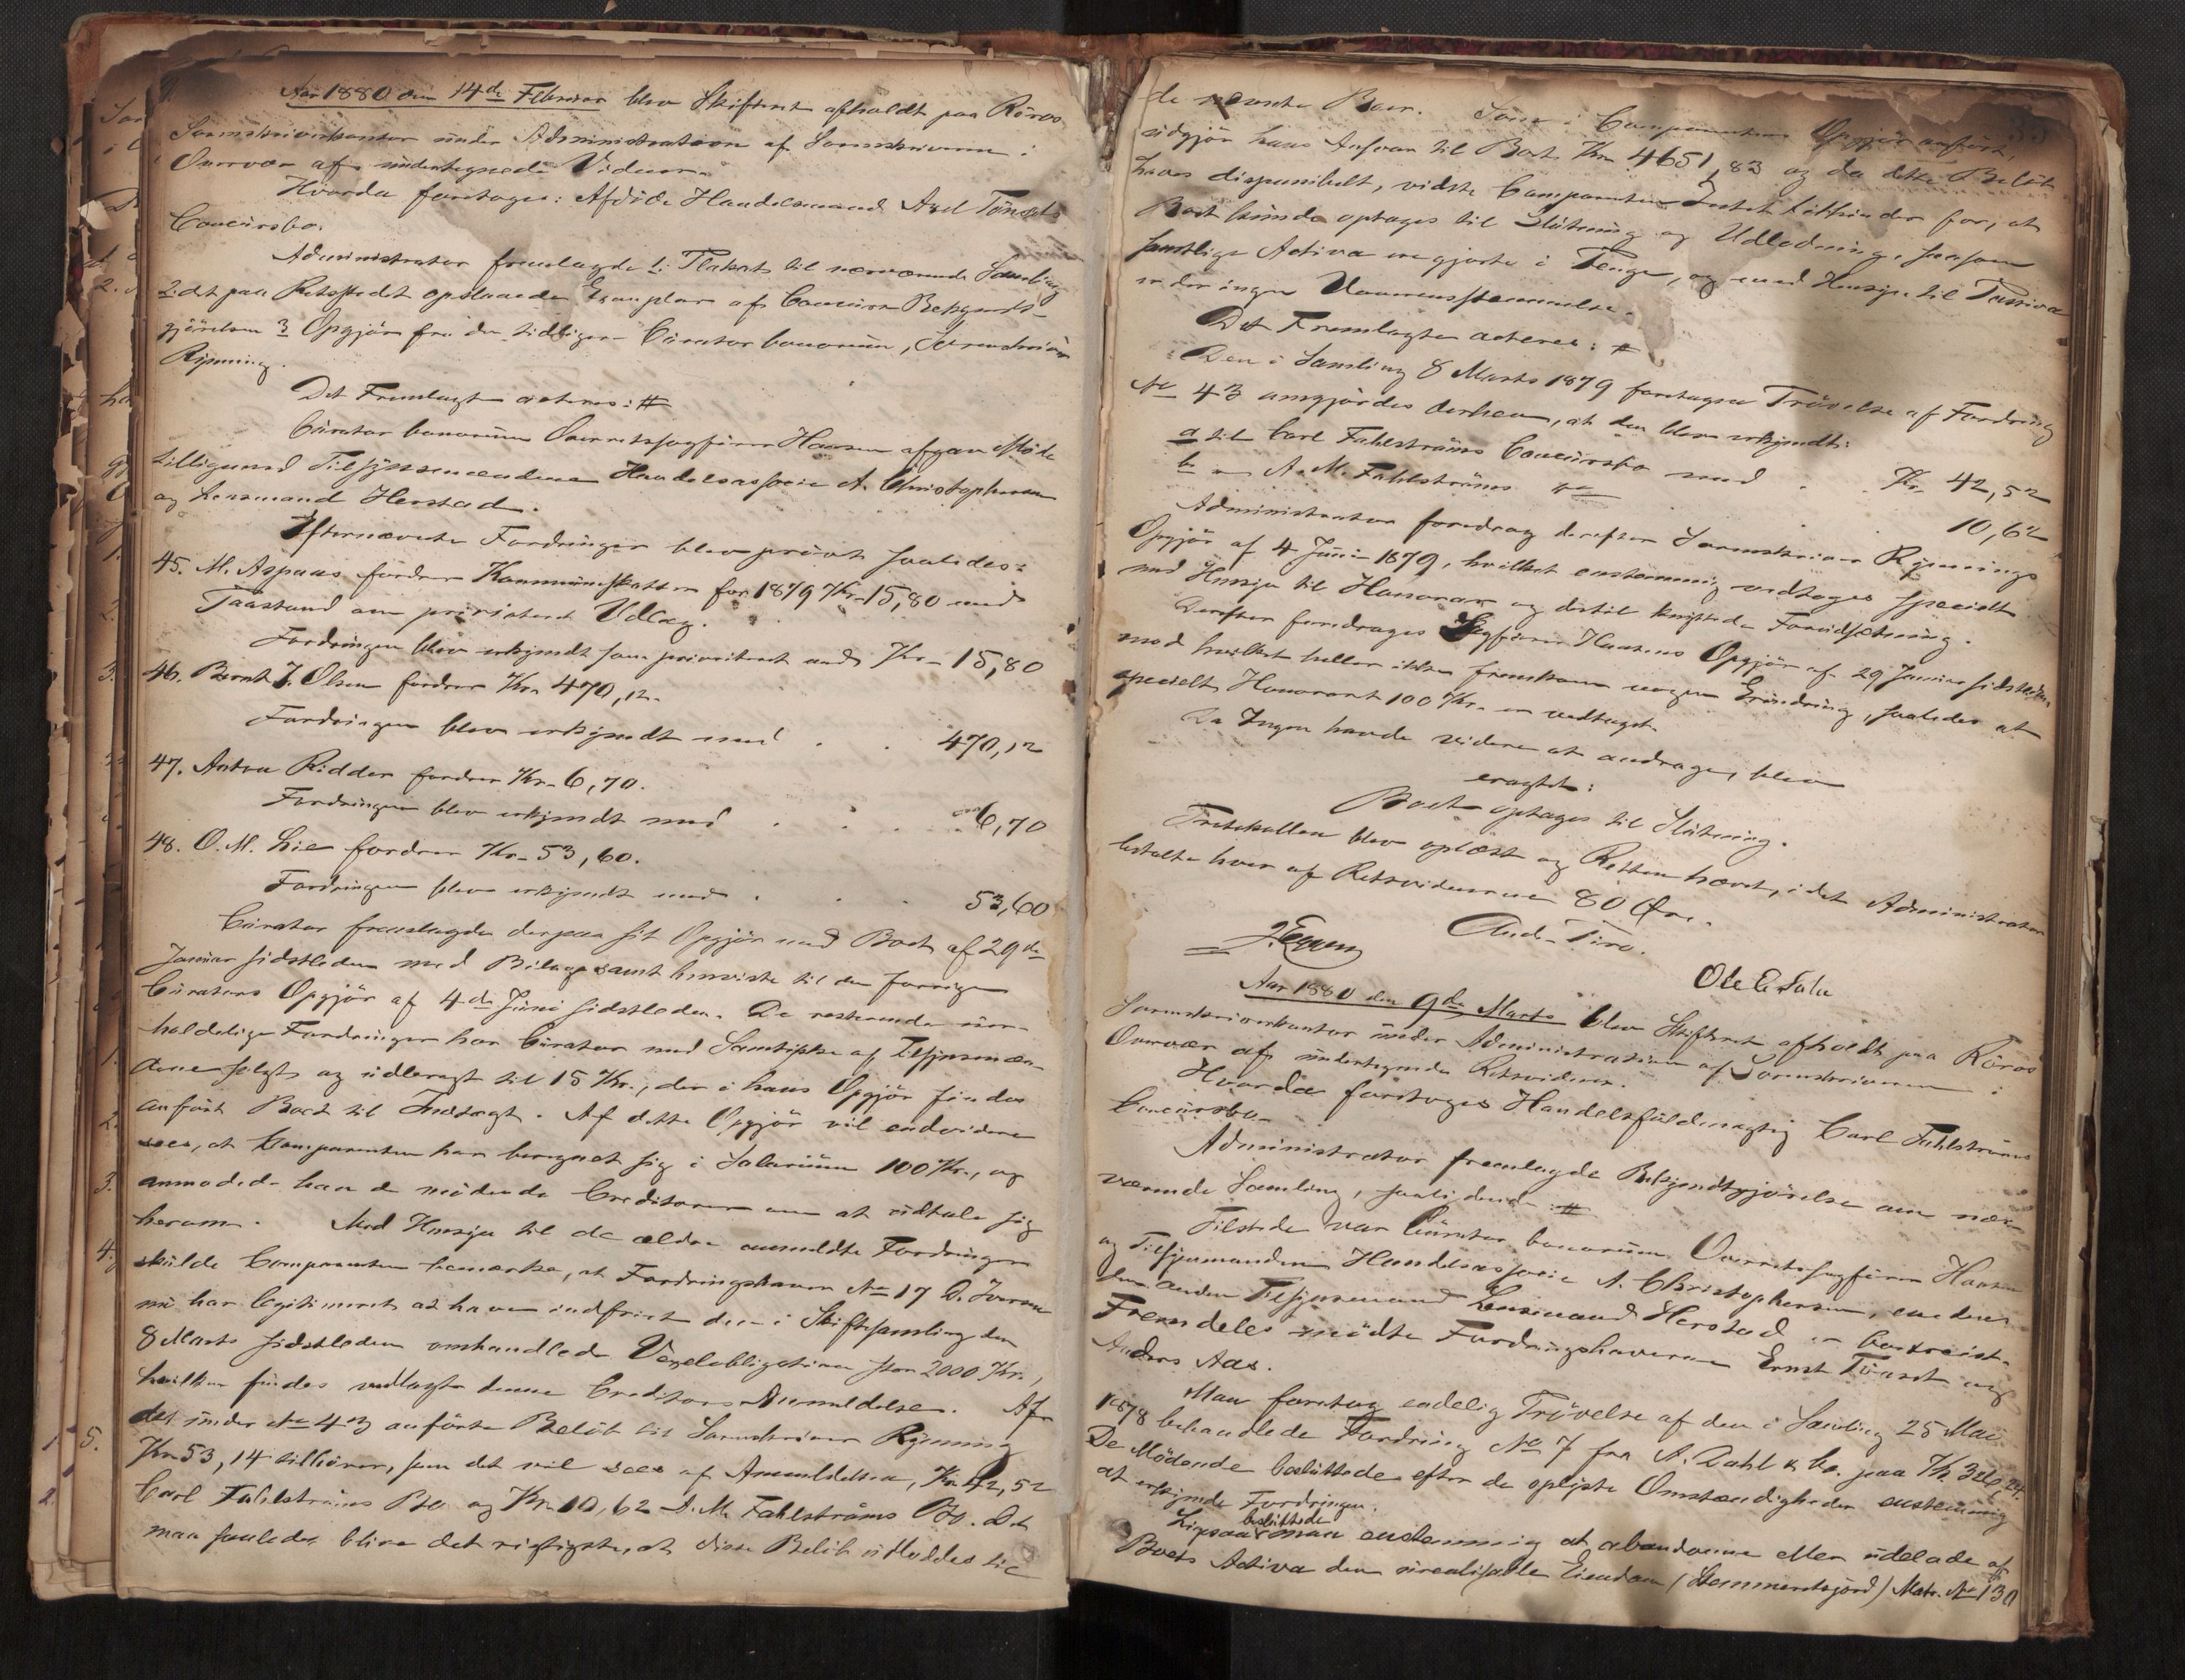 Aar 1880 den 14de Februar blev Skifteret afholdt paa Röros
Sorenskriverkontor under Administration af Sorenskriveren i
Overvær af undertegnede Vidner.
Hvorda foretoges: Afdöde Handelsmand Axel Tönsets
Concursbo.
Administrator fremlagde 1: Plakat til nærværende Samling
2: det paa Retsstedet opslaaede Exemplar af Concurs Bekjendt-
gjörelsen 3 Opgjör fra den tidligere Curator bonorum, Sorenskriver
Rynning.
Det Fremlagte acteres: #
Curator bonorum Overretssagförer Hansen afgav Möde
tilligemed Tilsynsmændene Handelsassocie A. Christophersen
og Lensmand Herstad.
Efternævnte Fordringer blev prövet saaledes:
45. M. Aspaas fordrer Kommuneskatten for 1879 Kr. 15,80 med
Paastand om prioriteret Udlæg.
Fordringen blev erkjendt som prioriteret med Kr. 15,80
46. Bernt J. Olsen fordrer Kr. 470,12.
Fordringen blev erkjendt med . . 470,12
47. Anton Ridder fordrer Kr. 6,70.
Fordringen blev erkjendt med . . . 6,70
48. O. M. Lie fordrer Kr. 53,60.
Fordringen blev erkjendt med . . . 53,60
Curator fremlagde derpaa sit Opgjör med Boet af 29de
Januar sidstleden med Bilage samt henviste til den forrige
Curators Opgjör af 4de Juni sidstleden. De resterende uer-
holdelige Fordringer har Curator med Samtykke af Tilsynsmæn-
dene solgt og udbragt til 15 Kr., der i hans Opgjör findes
anfört Boet til Indtægt. Af dette Opgjör vil endvidere
sees, at Comparenten har beregnet sig i Salarium 100 Kr., og
anmodede han de mödende Creditorer om at udtale sig
herom. Med Hensyn til de ældre anmeldte Fordringer
skulde Comparenten bemærke, at Fordringshaver No 17 D. Iversen
nu har legitimeret at have indfriet den i Skiftesamling den
8 Marts sidstleden omhandlede Vexelobligation stor 2000 Kr.,
hvilken findes vedlagt denne Creditors Anmeldelse. Af
det under No 43 anförte Belöb til Sorenskriver Rynning
Kr. 53,14 tilhörer, som det vil sees af Anmeldelsen, Kr. 42,52
Carl Fahlströms Bo og Kr. 10,62 A. M. Fahlströms Bo. Det
maa saaledes blive det rigtigste, at disse Belöb udloddes til
de nævnte Boer. Som i Comparentens Opgjör anfört,
udgjör hans Ansvar til Boet Kr. 4651,83 og da dette Belöb
haves disponibelt, vidste Comparenten Intet til Hinder for, at
Boet kunde optages til Slutning og Udlodning, saasom
samtlige Activa er gjorte i Penge, og med Hensyn til Passiva
er der ingen Uoverensstemmelse.
Det Fremlagte acteres: #
Den i Samling 8 Marts 1879 foretagne Prövelse af Fordring
No 43 omgjördes derhen, at den blev erkjendt:
a til Carl Fahlströms Concursbo med . . Kr. 42,52
b – A. M. Fahlströms – . . 10,62
Administrator foredrog derefter Sorenskriver Rynnings
Opgjör af 4 Juni 1879, hvilket enstemmig vedtoges specielt
med Hensyn til Honorar og dertil knyttede Forudsætning.
Derefter foredroges Sagförer Hansens Opgjör af 29 Januar sidstleden,
mod hvilket heller ikke fremkom nogen Erindring, saaledes at
specielt Honoraret 100 Kr. er vedtaget.
Da Ingen havde videre at andrage, blev
eragtet:
Boet optages til Slutning.
Protokollen blev oplæst og Retten hævet, idet Administrator
betalte hver af Retsvidnerne 80 Öre.
Ole E. Sula
Aar 1880 den 9de Marts blev Skifteret afholdt paa Röros
Sorenskriverkontor under Administration af Sorenskriveren i
Overvær af undertegnede Retsvidner.
Hvorda foretoges Handelsfuldmægtig Carl Fahlströms
Concursbo.
Administrator fremlagde Bekjendtgjörelse om nær-
værende Samling, saalydende: #
Tilstede var Curator bonorum Overretssagförer Hansen
og Tilsynsmanden Handelsassocie A. Christophersen, medens
den anden Tilsynsmand Lensmand Herstad er bortreist.
Fremdeles mödte Fordringshaverne Ernst Tönset og
Anders Aas.
Man foretog endelig Prövelse af den i Samling 25 Mai
1878 behandlede Fordring No 7 fra A. Dahl & Co. paa Kr.
De Mödende besluttede efter de oplyste Omstændigheder enstemmig
at erkjende Fordringen.
Ligesaa besluttede man enstemmig at abandonere eller udelade af
Boets Activa den urealisable Eiendom (Hammerdsjord) Matr. No 130